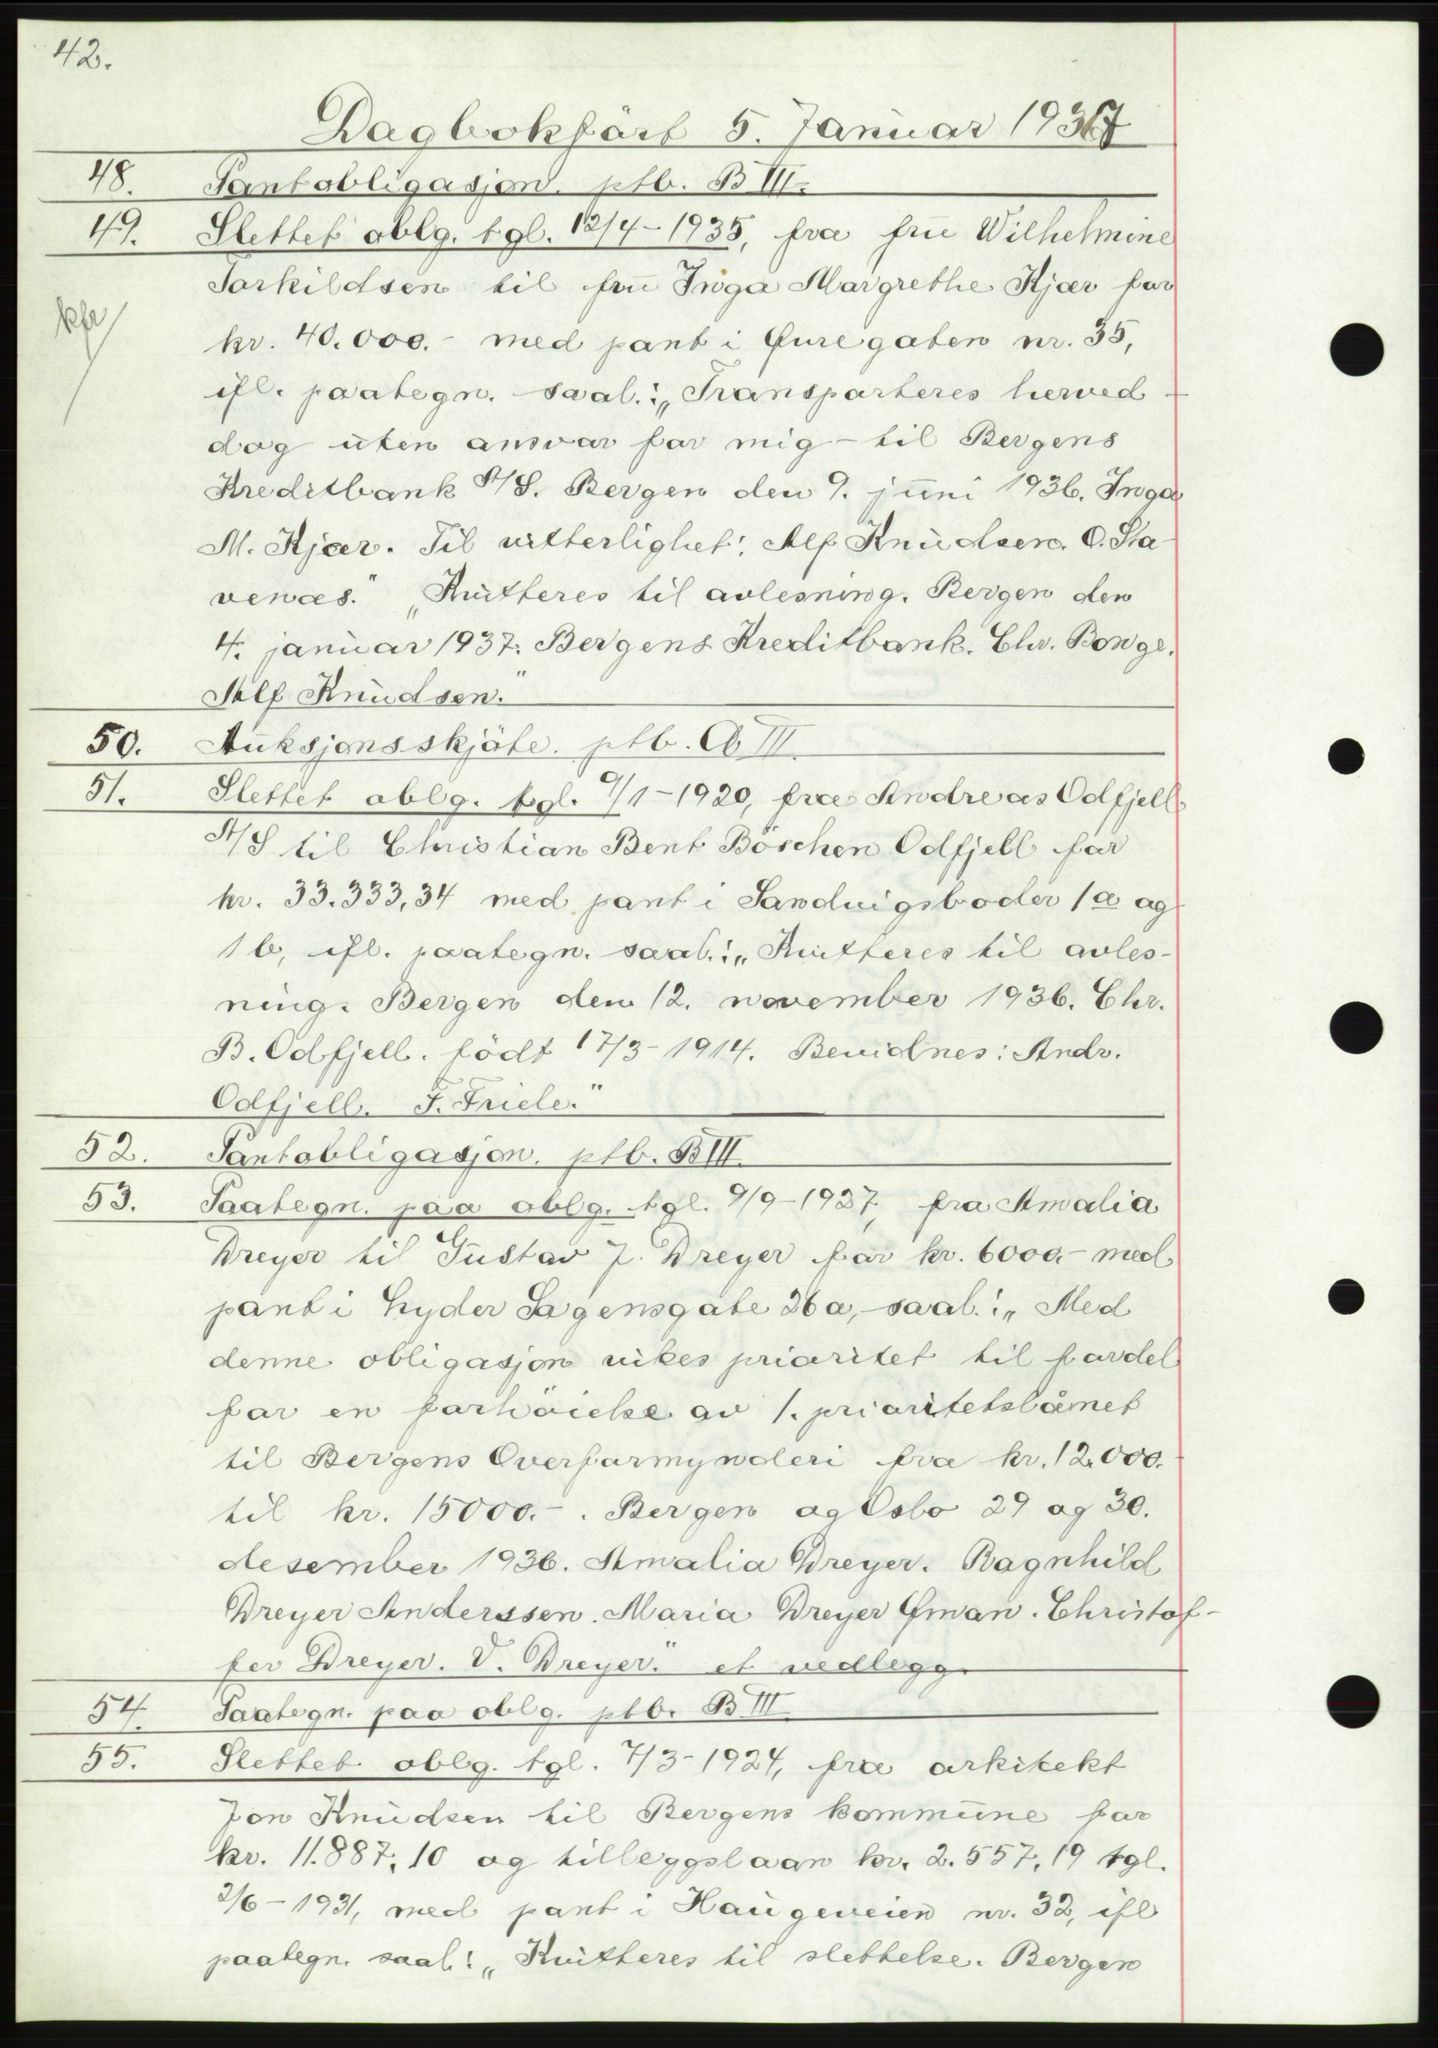 42.
Dagbokført 5. Januar 1937
48. Pantobligasjon. ptb. B III.
49. Slettet oblg. tgl. 12/4-1935, fra fru Wilhelmine
Torkildsen til fru Inga Margrethe Kjær for
kfr
kr. 40.000.- med pant i Øuregaten nr. 35,
ifl. paategn. saal.: „Transporteres herved -
dog uten ansvar for mig - til Bergens
Kreditbank A/S. Bergen den 9. juni 1936. Inga
M. Kjær. Til vitterlighet: Alf Knudsen. O. Sta
venæs." „Kvitteres til avlesning. Bergen den
4. januar 1937. Bergens Kreditbank. Chr. Bonge.
Alf Knudsen."
50. Auksjonsskjöte. ptb. A III.
51. Slettet oblg. tgl. 9/1-1920, fra Andreas Odfjell
A/S til Christian Bent Böschen Odfjell for
kr. 33.333,34 med pant i Sandvigsboder 1 a og
1 b, ifl. paategn. saal.: „Kvitteres til avles-
ning. Bergen den 12. november 1936. Chr.
B. Odfjell. födt 17/3-1914. Bevidnes: Andr.
Odfjell. F. Friele."
52. Pantobligasjon. ptb. B III.
53. Paategn. paa oblg. tgl. 9/9-1927, fra Amalia
Dreyer til Gustav J. Dreyer for kr. 6000.- med
pant i Lyder Sagensgate 26a, saal.: „Med
denne obligasjon vikes prioritet til fordel
for en forhöielse av 1. prioritetslånet
til Bergens Overformynderi fra kr. 12.000.
til kr. 15000.-. Bergen og Oslo 29 og 30.
desember 1936. Amalia Dreyer. Ragnhild
Dreyer Anderssen. Maria Dreyer Öman. Christof-
fer Dreyer. V. Dreyer." et vedlegg.
54. Paategn. paa oblg. ptb. B III
55. Slettet oblg. tgl. 7/3-1924, fra arkitekt
Jon Knudsen til Bergens kommune for
kr. 11.887,10 og tilleggslaan kr. 2.557,19 tgl.
2/6-1931, med pant i Haugeveien nr. 32, ifl
paategn. saal.: „Kvitteres til slettelse. Bergen